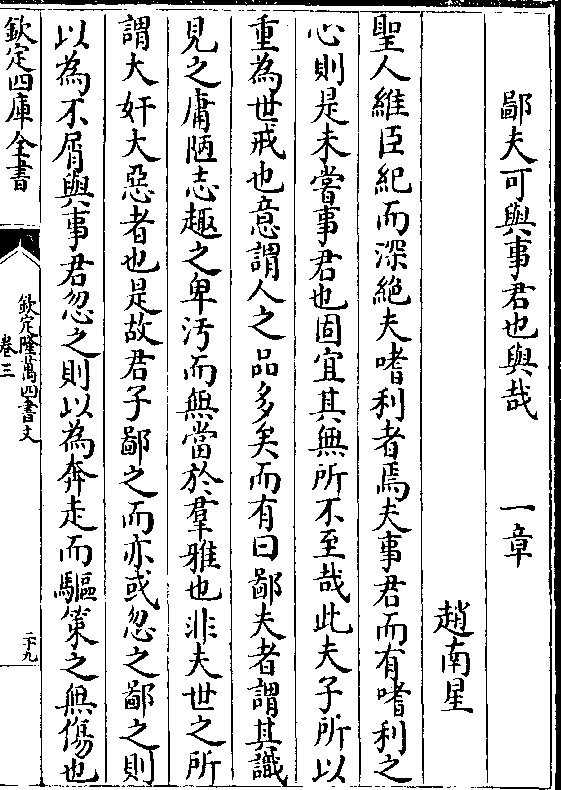 鄙夫可與事君也與哉　一章
趙南星
聖人維臣紀而深絶夫嗜利者焉夫事君而有嗜利之
心則是未嘗事君也固宜其無所不至哉此夫子所以
重為世戒也意謂人之品多矣而有曰鄙夫者謂其識
見之庸陋志趣之卑汚而無當於羣雅也非夫世之所
謂大奸大惡者也是故君子鄙之而亦或忽之鄙之則
以為不屑與事君忽之則以為奔走而驅策之無傷也
欽定四庫全書
欽定隆萬四書文
卷三
二十九